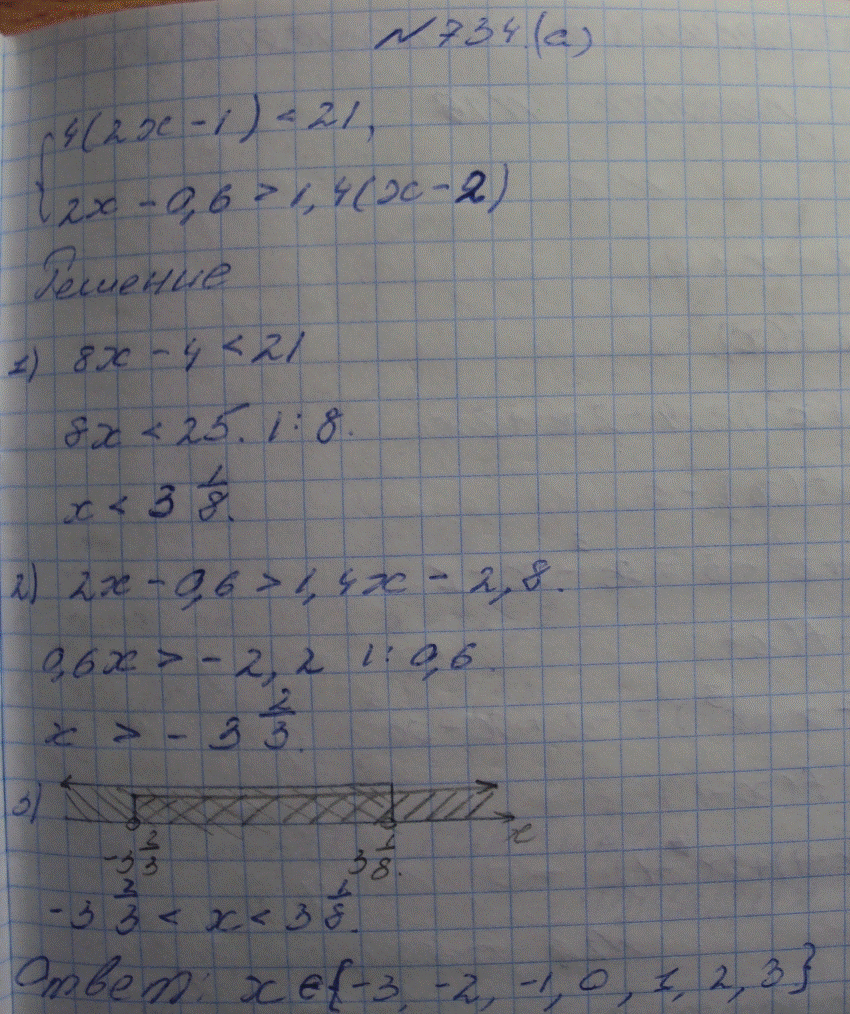 №734.(а)
{4(2x-1)<21,
2x-0,6>1,4(x-2)
Решение
1) 8x-4<21
8x<25. |:8.
x<3 1/8.
2) 2x-0,6>1,4x-2,8.
0,6x>-2,2 |:0,6.
x>-3 2/3.
3)
x
-3 2/3 3 1/8.
-3 2/3<x<3 1/8.
Ответ: x∈{-3, -2, -1, 0, 1, 2, 3}